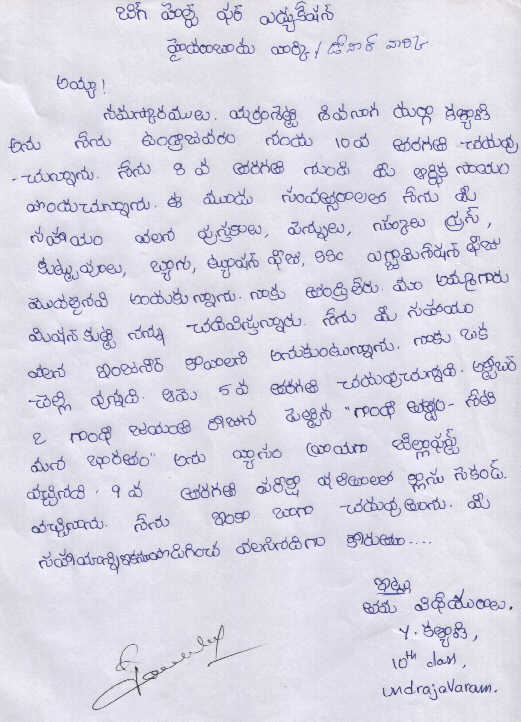 బిగ్ హెల్ప్ ఫర్ ఎడ్యుకేషన్
హైదరాబాదు వారికి / డోనార్ వారికి
అయ్యా!
నమస్కారములు. యర్రంశెట్టి శివనాగ దుర్గా కళ్యాణి
అను నేను ఉండ్రాజవరం నందు 10వ తరగతి చదువు
-చున్నాను. నేను 8 వ తరగతి నుండి మీ ఆర్థిక సాయం
పొందుచున్నాను. ఈ మూడు సంవత్సరాలలో నేను మీ
సహాయం వలన పుస్తకాలు, పెన్నులు, స్కూలు డ్రస్,
కుట్టుకూలు, బ్యాగు, ట్యూషన్ ఫీజు, SSC ఎగ్జామినేషన్ ఫీజు
మొదలైనవి అందుకున్నాను. నాకు తండ్రి లేరు. మా అమ్మగారు
మిషన్ కుట్టి నన్ను చదివిస్తున్నారు. నేను మీ సహాయం
వలన ఇంజనీర్ కావాలని అనుకుంటున్నాను. నాకు ఒక
చెల్లి వున్నది. ఆమె 5వ తరగతి చదువుచున్నది. అక్టోబర్
2 గాంధీ జయంతి రోజున పెట్టిన "గాంధీ తత్వం - నేటి
మన భారతం" అను వ్యాసం వ్రాయగా జిల్లాఫస్ట్
వచ్చినది. 9 వ తరగతి పరీక్షా ఫలితాలలో క్లాసు సెకండ్.
వచ్చినాను. నేను ఇంకా బాగా చదువుతాను. మీ
సహాయాన్ని కొనసాగించ వలసినదిగా కోరుతూ....
ఇట్లు
తమ విధేయురాలు.
Y. కళ్యాణి,
10th class,
undrajavaram.